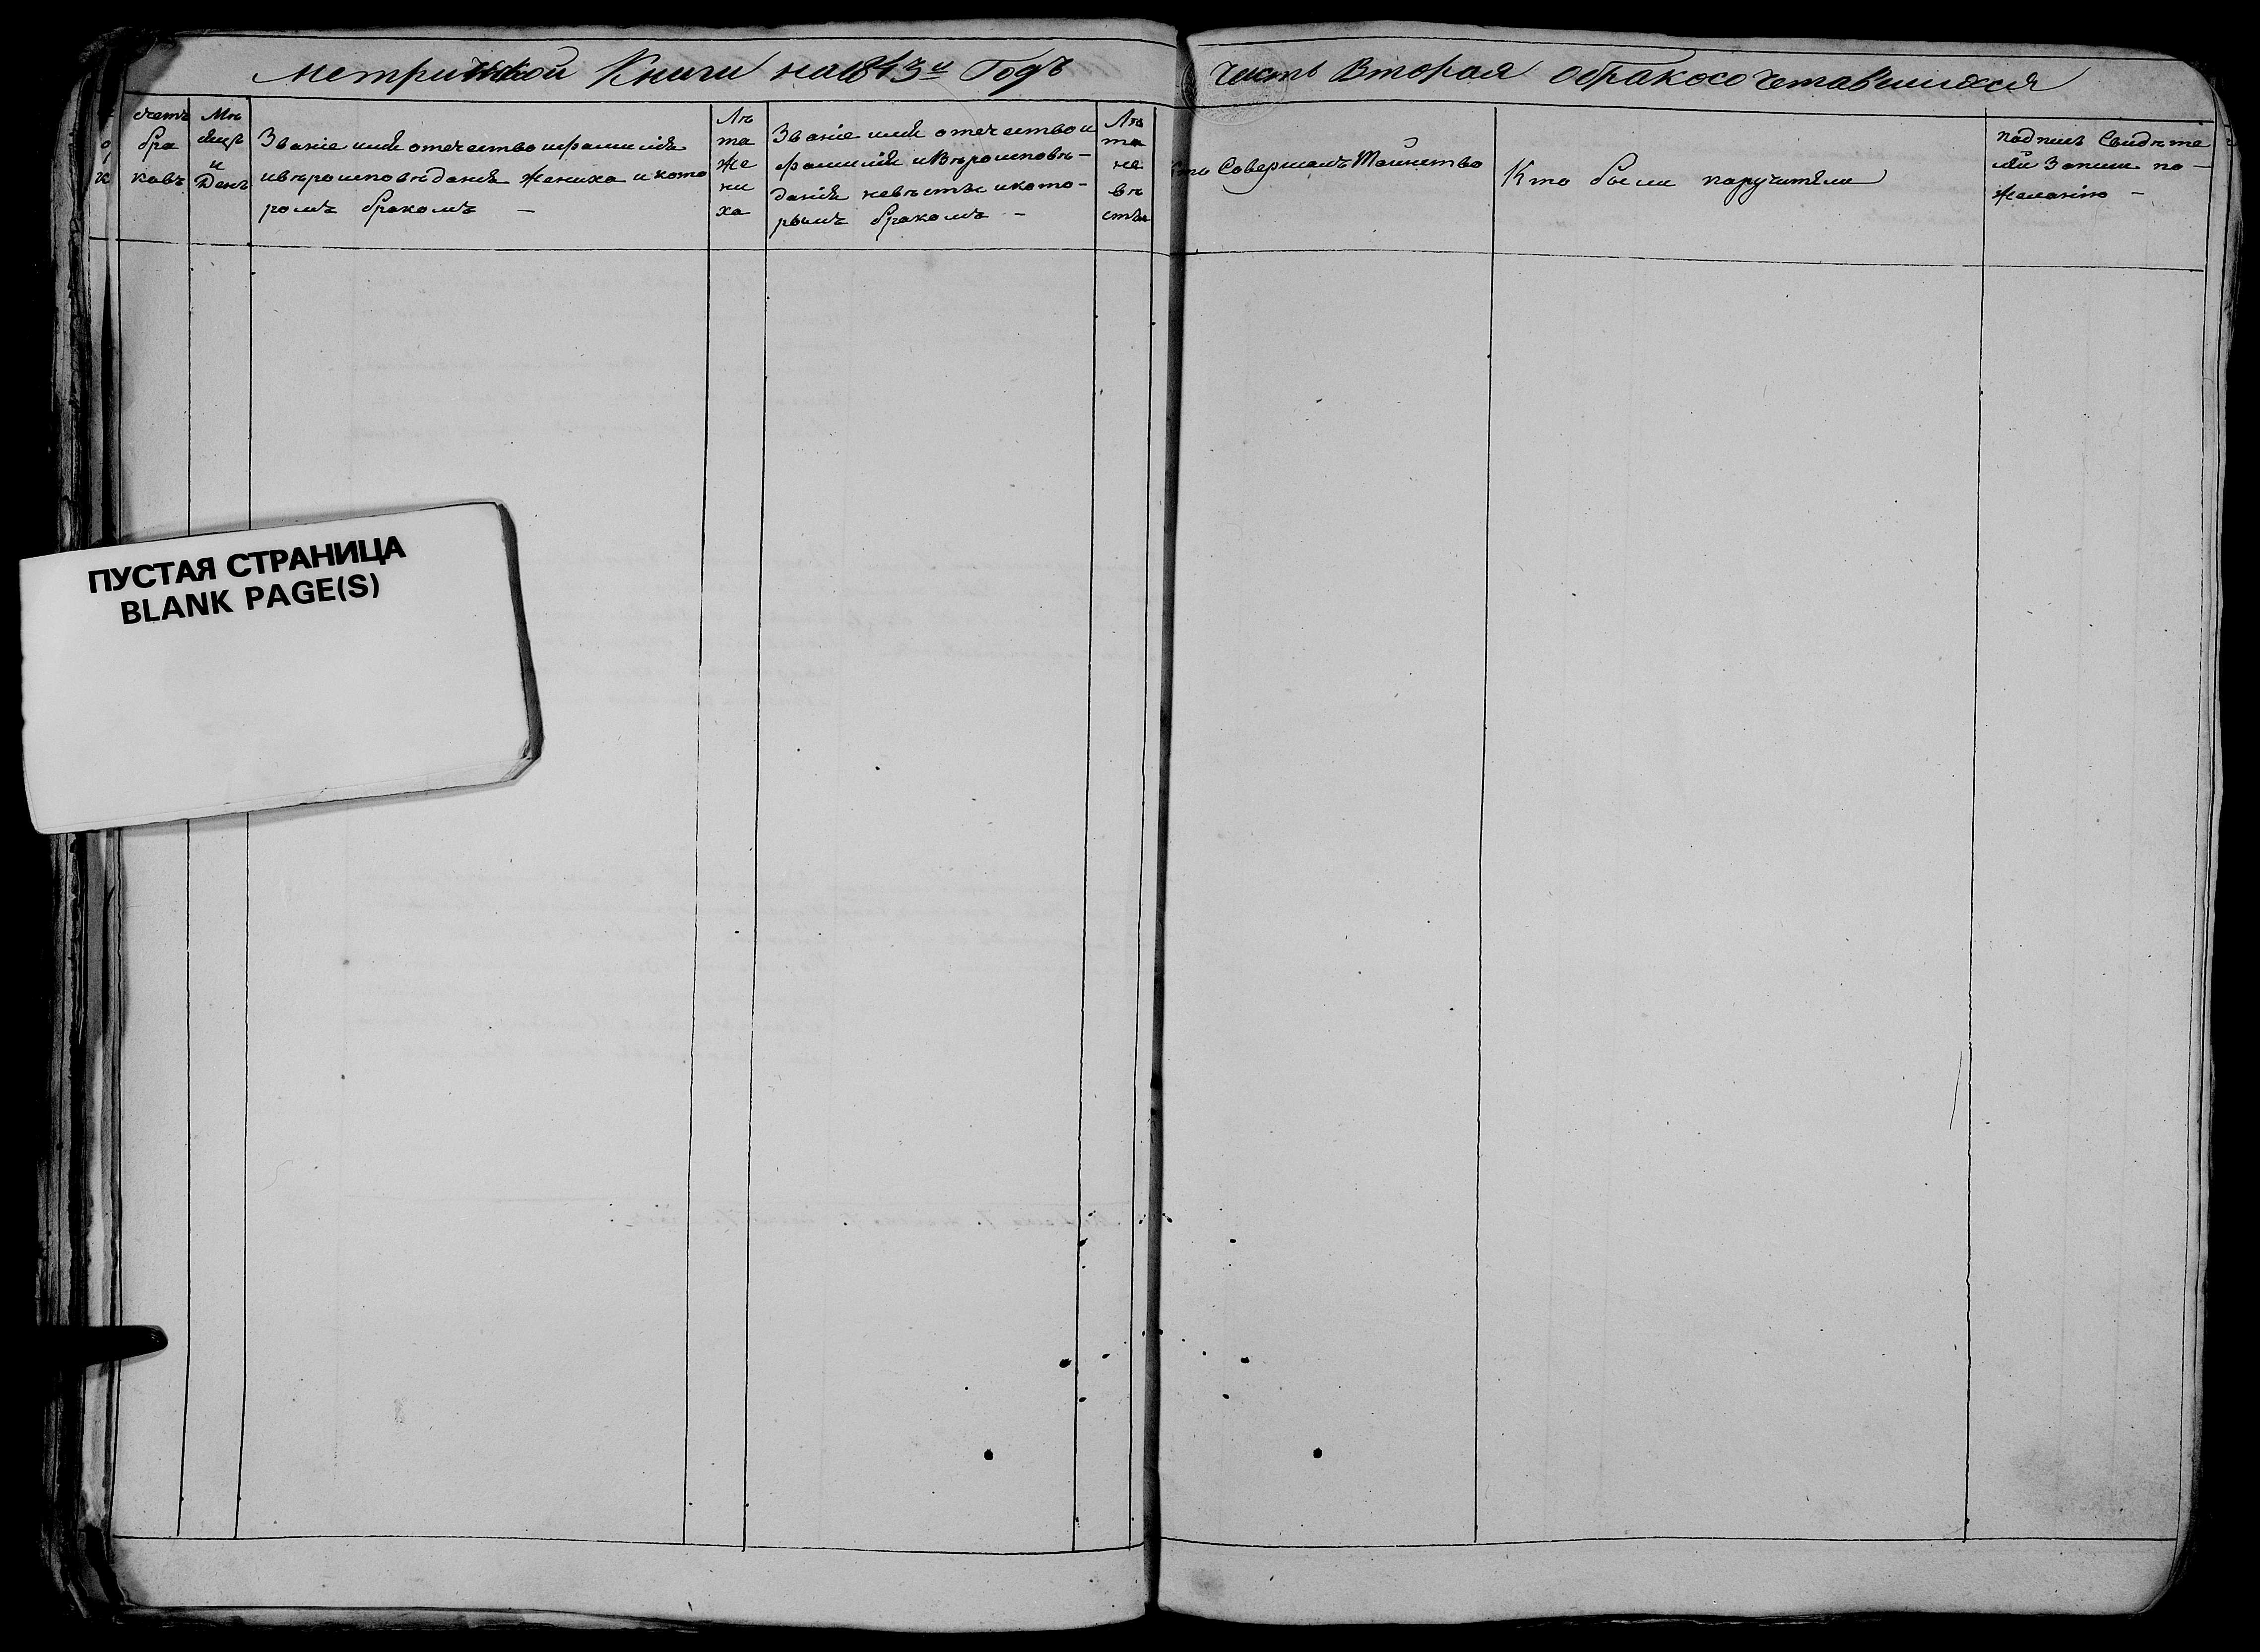 Метрической Книги на 1843й Годъ
Часть Вторая о бракосочетавшихся
счетъ
бра
ковъ
Мѣ
сяцъ
и
День
Званіе имя отечество и фамилія
и вѣроисповѣданія жениха и кото
ромъ бракомъ —
Лѣ
та
же
ни
ха
Званіе имя отечество и
фамилія и Вѣроисповѣ-
данія невѣсты и кото-
рымъ бракомъ —
Лѣ
та
не
вѣ
сты
Кто Совершалъ Таинство
Кто были поручители
подпись Свидѣте
лей Записи по-
желанію —
ПУСТАЯ СТРАНИЦА
BLANK PAGE(S)